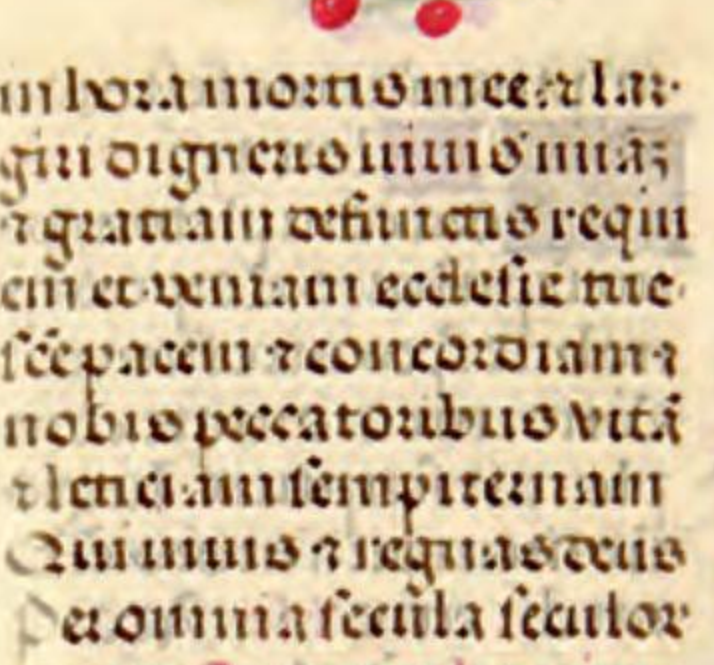 in hora mortis mee: ⁊ lar
giri digneris uiuis mīaȝ
⁊ gratiam defunctis requi
em̄ et veniam ecclesie tue
sc̄e pacem ⁊ concordiam ⁊
nobis peccatoribus vitā
⁊ leticiam sempiternam
Qui uiuis ⁊ regnas deus
Per omnia secūla seculor